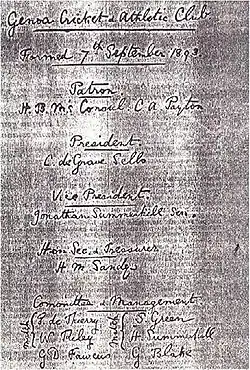 Genoa Cricket & Athletic Club
Formed 7th September 1893
Patron
H. B. M's Consul. C. A. Payton
President.
C. de Grave Sells
Vice President.
Jonathan Summerhill Sen.
Hon Sec. & Treasurer
H. M. Sandys
Committee & Management
E. De Thierry S. Green
W. Riley H. Summerhill
G. D. Fawcus G. Blake